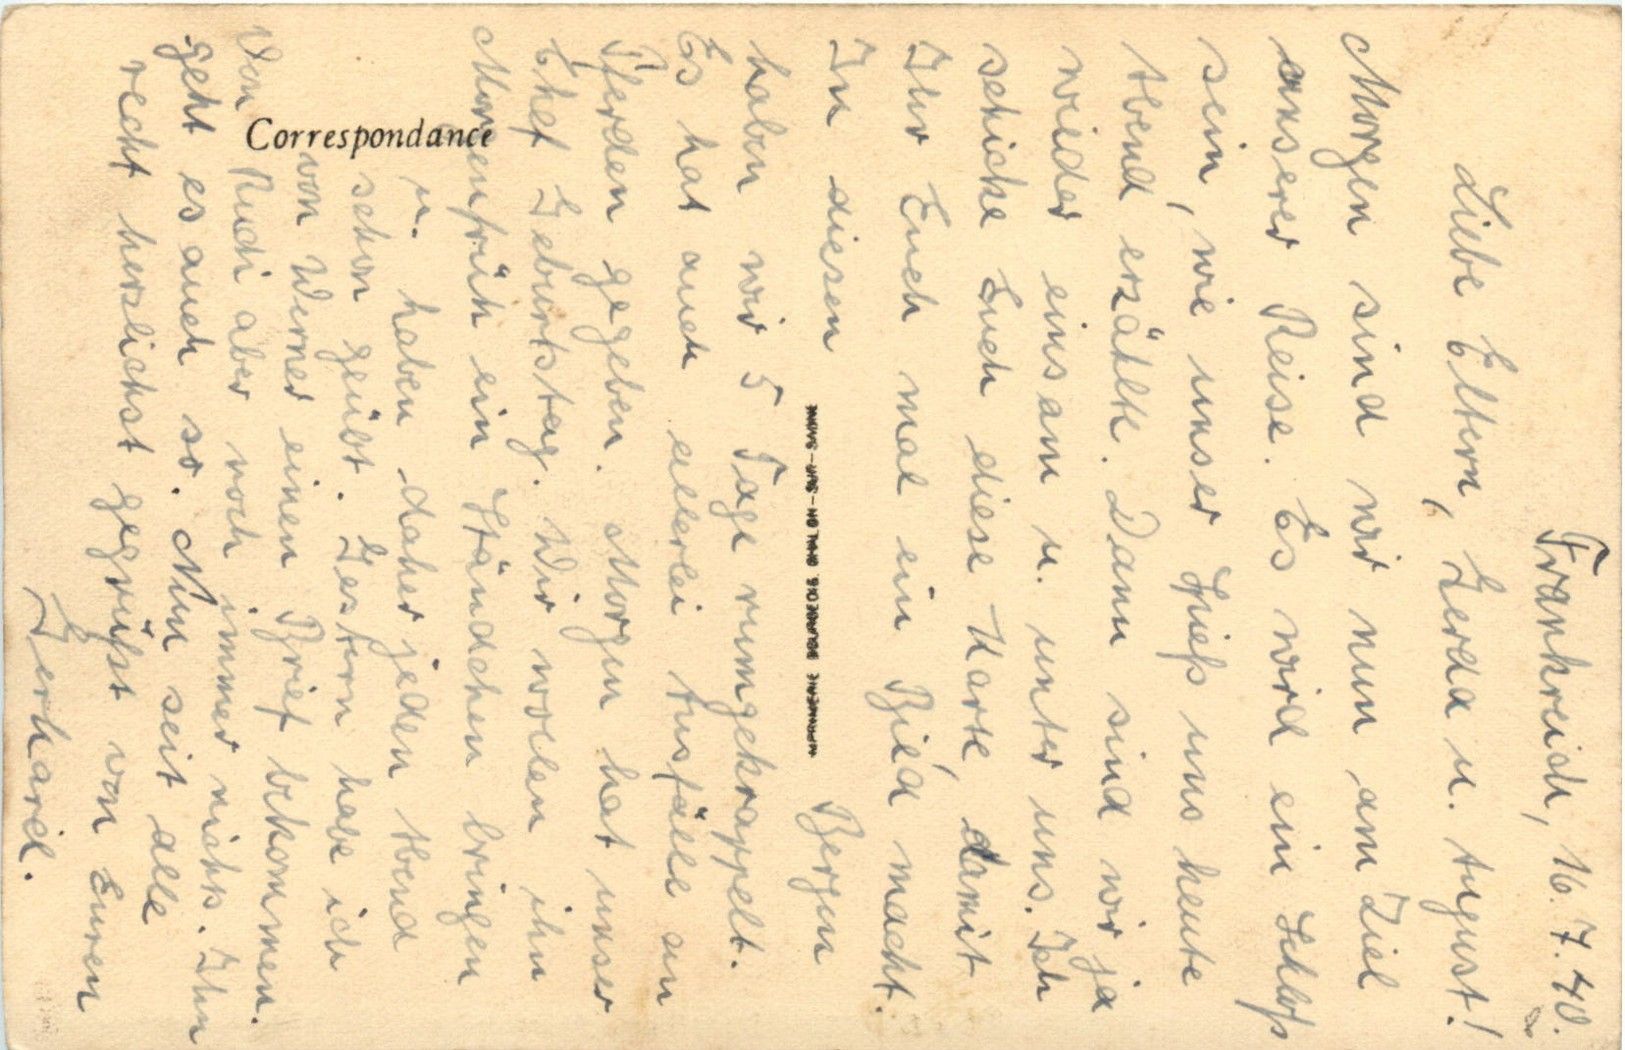 Frankreich, 16.7.40.
Liebe Eltern, Gerda u. August!
Morgen sind wir nun am Ziel
unserer Reise. Es wird ein Schloß
sein, wie unser Spieß uns heute
Abend erzählt. Dann sind wir ja
wieder einsam u. unter uns. Ich
schicke Euch diese Karte, damit
Ihr Euch mal ein Bild macht.
In diesen Bergen
haben wir 5 Tage rumgekrappelt.
Es hat auch allerlei Ausfälle an
Pferden gegeben. Morgen hat unser
Chef Geburtstag. Wir wollen ihn
Morgenfrüh ein Ständchen bringen
u. haben daher jeden Abend
schon geübt. Gestern habe ich
von Werner einen Brief bekommen.
Von Rudi aber noch immer nichts. Ihm
geht es auch so. Nun seit alle
recht herzlichst gegrüßt von Euren
Gerhard.
Correspondance
IMPRIMERIE BOURGEOIS CHALON-SUR-SAONE